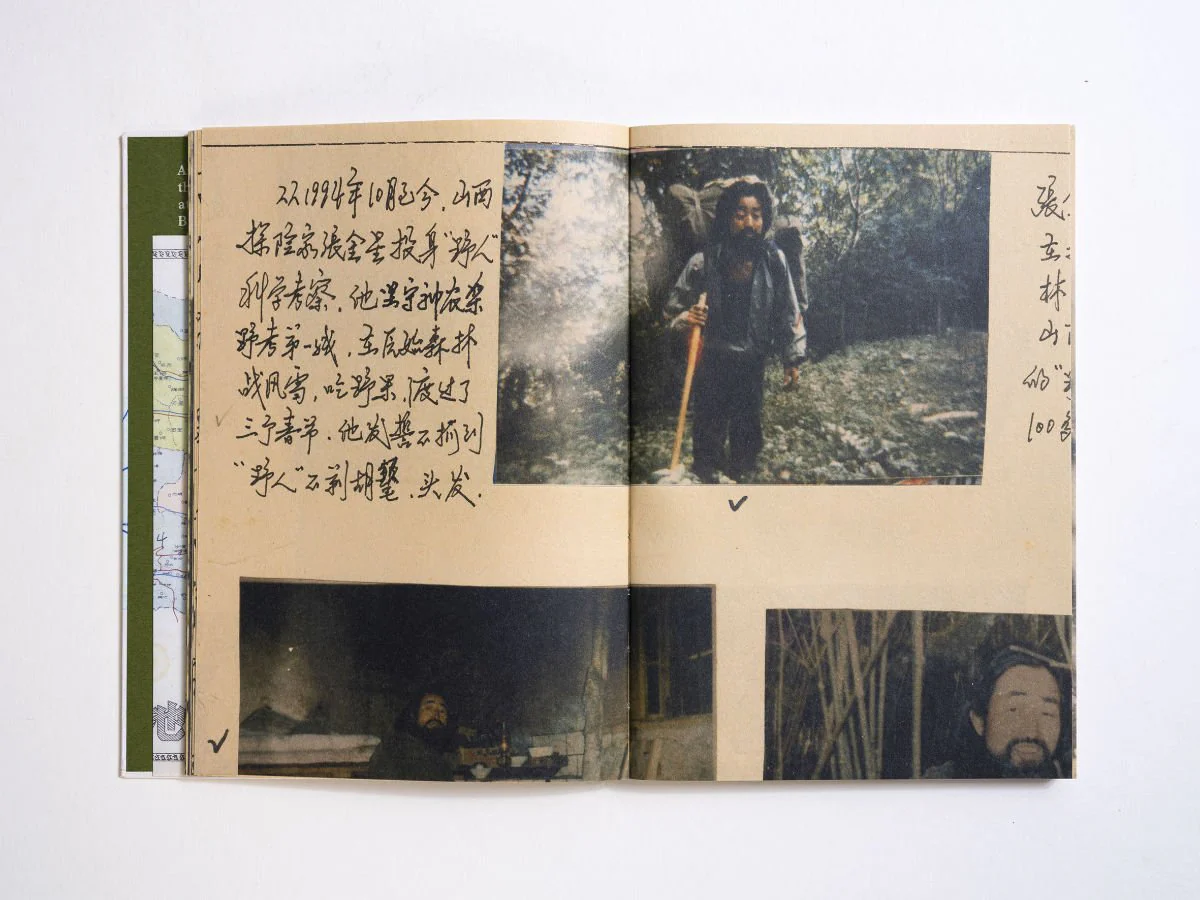 从1994年10月至今，山西
探险家張金星投身“野人”
科学考察，他坚守神农架
野考第一线，在原始森林
战风雪，吃野果，渡过了
三个春节。他发誓不抓到
“野人”不剃胡鬚、头发.
張
在
林
山
的“
100